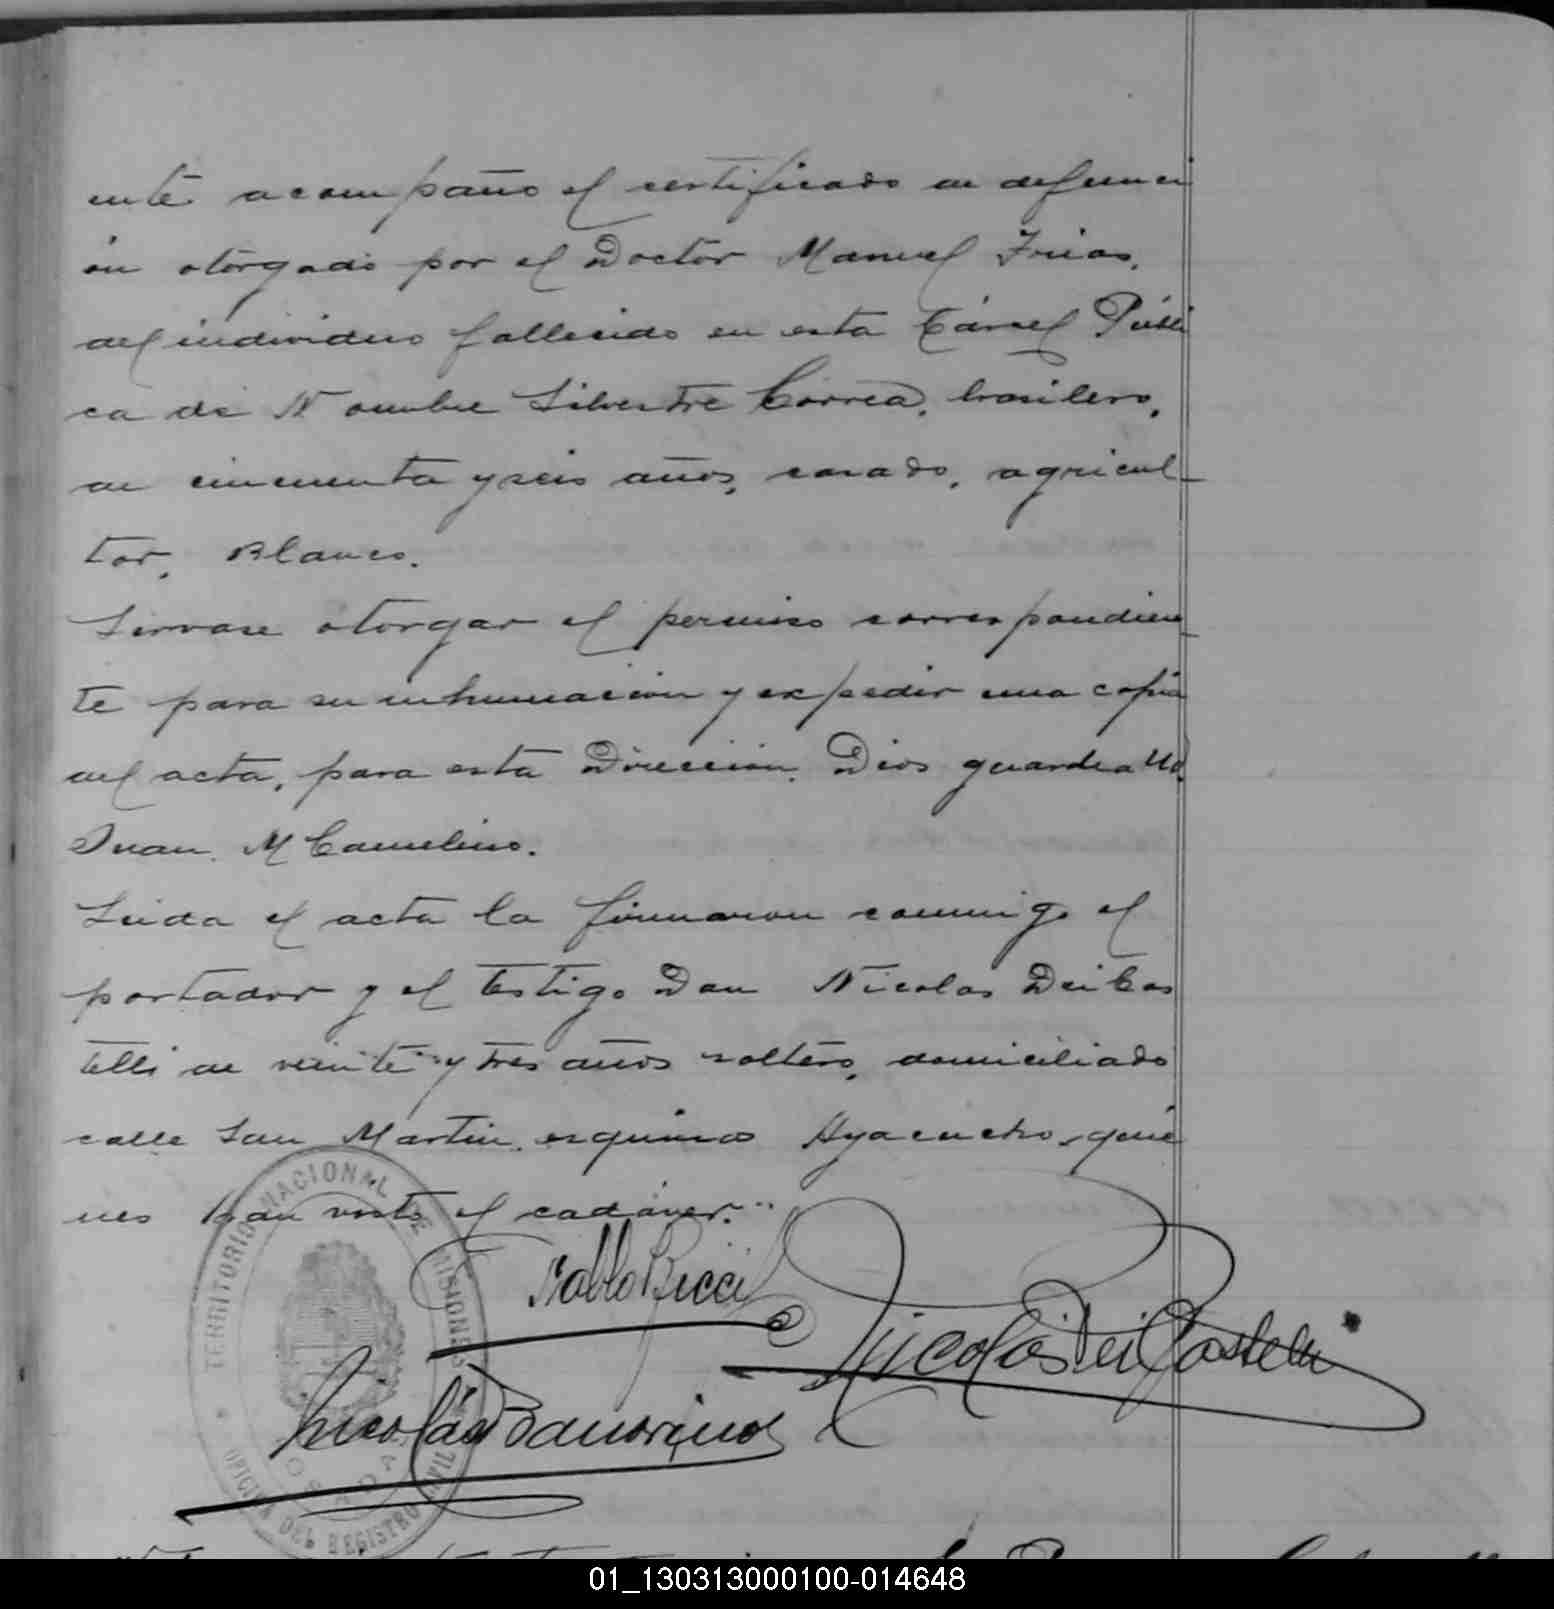 ente acompaño el certificado de defunci
ón otorgado por el Doctor Manuel Frias,
del individuo fallecido en esta Cárcel Públi
ca de Nombre Silvestre Correa, brasilero,
de cincuenta y seis años, casado, agricul-
tor, Blanco.
Sirvase otorgar el permiso correspondien-
te para su inhumación y expedir una copia
del acta, para esta Dirección. Dios guarde a Ud.
Juan M Camelino.
Leida el acta la firmaron conmigo el
portador y el testigo Don Nicolas Dei Cas
telli de veinte y tres años soltero, domiciliado
calle San Martin esquina Ayacucho, quie
nes han visto el cadáver.
Pablo Ricci
Nicolás Dei Castelli
Nicolás
TERRITORIO NACIONAL DE MISIONES
POSADAS
OFICINA DEL REGISTRO CIVIL
01_130313000100-014648